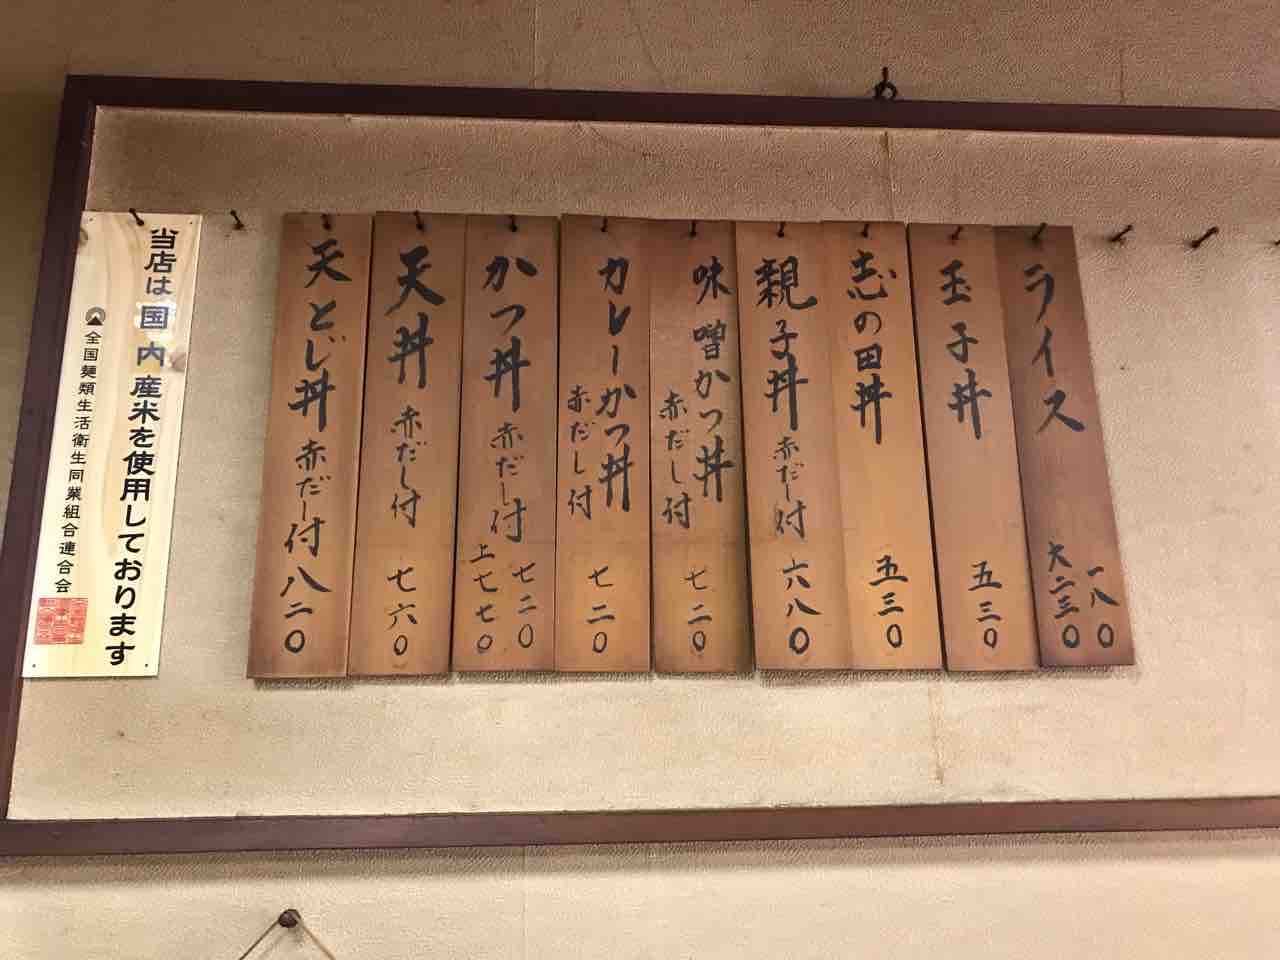 ライス
一八〇
大二三〇
玉子丼
五三〇
志の田丼
五三〇
親子丼
赤だし付
六八〇
味噌かつ丼
赤だし付
七二〇
カレーかつ丼
赤だし付
七二〇
かつ丼
赤だし付
七二〇
上七七〇
天丼
赤だし付
七六〇
天とじ丼
赤だし付
八二〇
当店は国内産米を使用しております
全国麺類生活衛生同業組合連合会